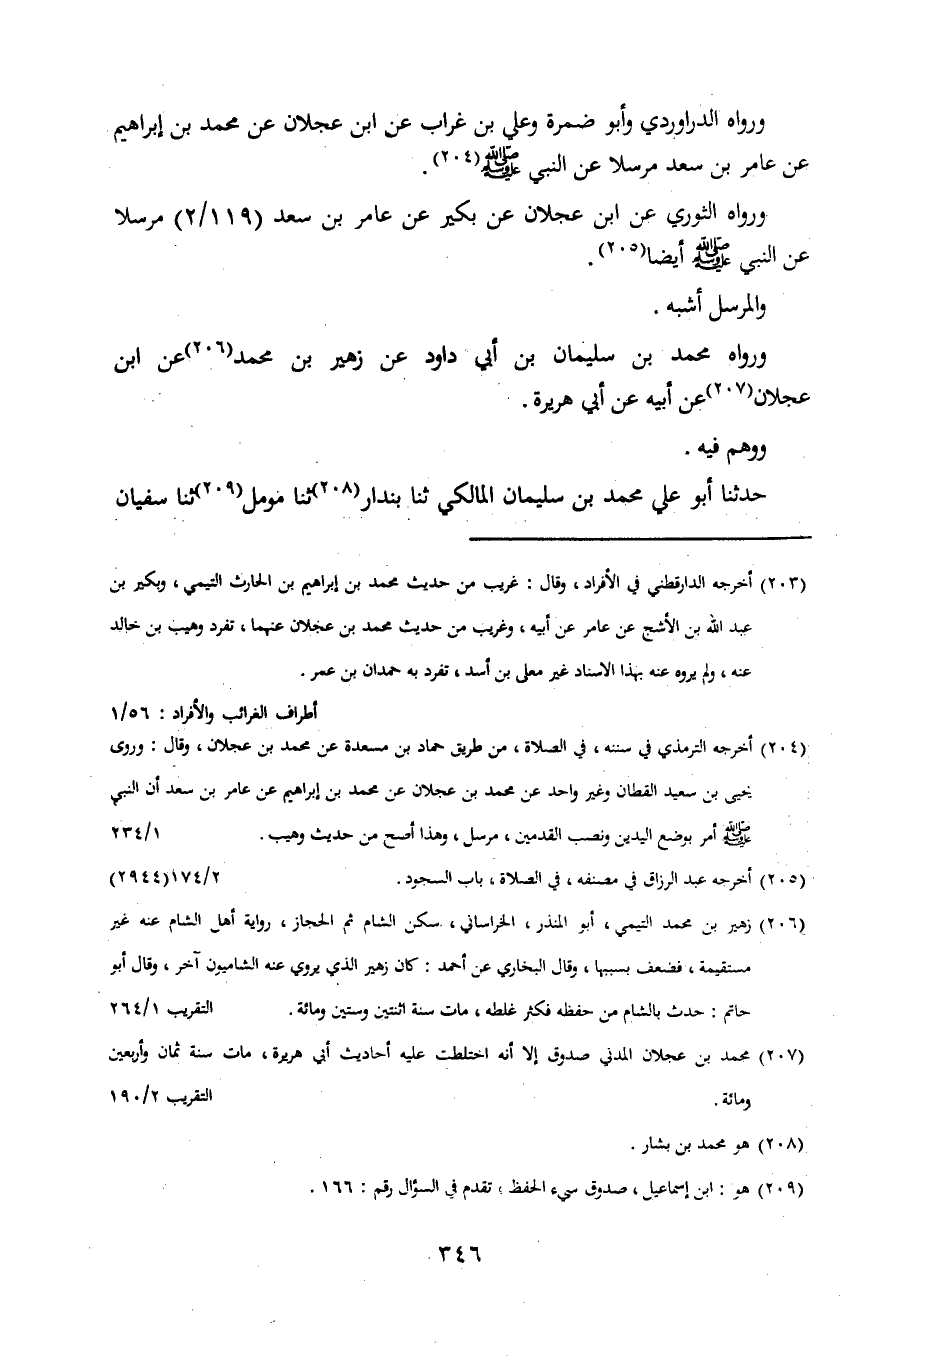 ورواه الدراوردي وأبو ضمرة وعلي بن غراب عن ابن عجلان عن محمد بن إبراهيم
عن عامر بن سعد مرسلا عن النبي ﷺ(٢٠٤).
ورواه الثوري عن ابن عجلان عن بكير عن عامر بن سعد (٢/١١٩) مرسلا
عن النبي ﷺ أيضا(٢٠٥).
والمرسل أشبه .
ورواه محمد بن سليمان بن أبي داود عن زهير بن محمد(٢٠٦)عن ابن
عجلان(٢٠٧)عن أبيه عن أبي هريرة .
ووهم فيه .
حدثنا أبو علي محمد بن سليمان المالكي ثنا بندار(٢٠٨)ثنا مومل(٢٠٩)ثنا سفيان
(٢٠٣) أخرجه الدارقطني في الأفراد ، وقال : غريب من حديث محمد بن إبراهيم بن الحارث التيمي ، وبكير بن
عبد الله بن الأشج عن عامر عن أبيه ، وغريب من حديث محمد بن عجلان عنهما ، تفرد وهيب بن خالد
عنه ، ولم يروه عنه بهذا الاسناد غير معلى بن أسد ، تفرد به حمدان بن عمر .
أطراف الغرائب والأفراد : ١/٥٦
(٢٠٤) أخرجه الترمذي في سننه ، في الصلاة ، من طريق حماد بن مسعدة عن محمد بن عجلان ، وقال : وروى
يحيى بن سعيد القطان وغير واحد عن محمد بن عجلان عن محمد بن إبراهيم عن عامر بن سعد أن النبي
ﷺ أمر بوضع اليدين ونصب القدمين ، مرسل ، وهذا أصح من حديث وهيب . ٢٣٤/١
(٢٠٥) أخرجه عبد الرزاق في مصنفه ، في الصلاة ، باب السجود . ١٧٤/٢(٢٩٤٤)
(٢٠٦) زهير بن محمد التيمي ، أبو المنذر ، الخراساني ، سكن الشام ثم الحجاز ، رواية أهل الشام عنه غير
مستقيمة ، فضعف بسببها ، وقال البخاري عن أحمد : كان زهير الذي يروي عنه الشاميون آخر ، وقال أبو
حاتم : حدث بالشام من حفظه فكثر غلطه ، مات سنة اثنتين وستين ومائة . التقريب ٢٦٤/١
(٢٠٧) محمد بن عجلان المدني صدوق إلا أنه اختلطت عليه أحاديث أبي هريرة ، مات سنة ثمان وأربعين
ومائة . التقريب ١٩٠/٢
(٢٠٨) هو محمد بن بشار .
(٢٠٩) هو : ابن إسماعيل ، صدوق سيء الحفظ ؛ تقدم في السؤال رقم : ١٦٦ .
٣٤٦